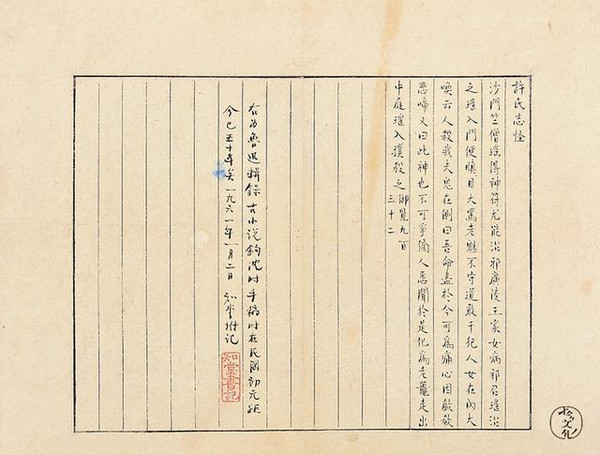 許氏志怪
沙門竺僧瑤得神符尤能治邪廣陵王家女病邪召瑤治
之瑤入門便瞋目大罵老魅不守道敢干犯人女在內大
喚云人殺我夫鬼在側曰吾命盡於今可為痛心因歔欷
悲啼又曰此神也不可爭傍人悉聞於是化為老鼉走出
中庭瑤入撲殺之御覽九百
三十二
右為魯迅輯錄古小說鈎沈時手稿時在民國初元距
今已五十年矣一九六一年一月二日 知堂附记
知堂書記